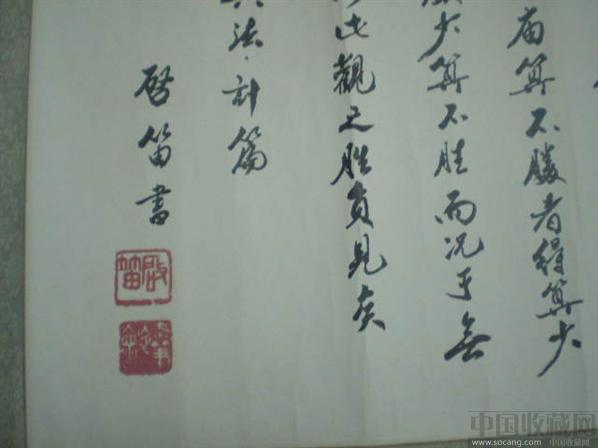 庙算不勝者得算少
少算不胜而况于無
此觀之胜負見矣
兵法·計篇
啓笛書
啟笛
中国收藏网
www.socang.com 中国收藏网